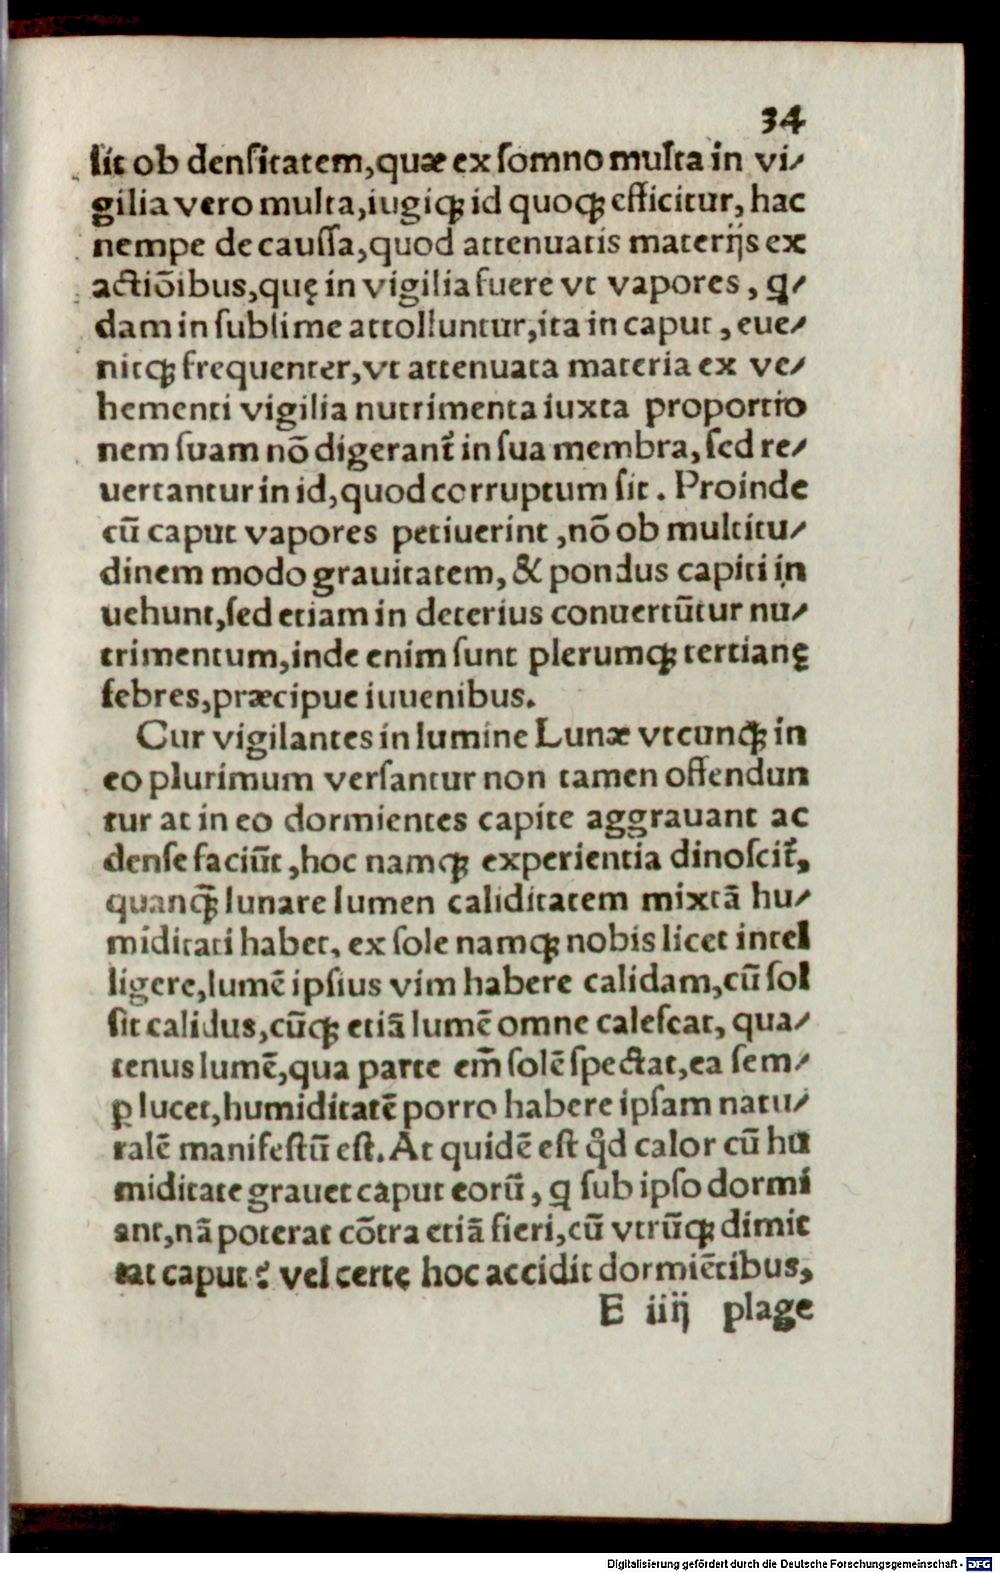 34
ſit ob denſitatem,quæ ex ſomno multa in vi⸗
gilia vero multa,iugiqꝫ id quoqꝫ efficitur, hac
nempe de cauſſa,quod attenuatis materijs ex
actiõibus,quę in vigilia fuere vt vapores, q⸗
dam in ſublime attolluntur,ita in caput, eue⸗
nitqꝫ frequenter,vt attenuata materia ex ve⸗
hementi vigilia nutrimenta iuxta proportio
nem ſuam nõ digerant᷑ in ſua membra, ſed re⸗
uertantur in id,quod corruptum ſit. Proinde
cũ caput vapores petiuerint, nõ ob multitu⸗
dinem modo grauitatem, & pondus capiti in
uehunt,ſed etiam in deterius conuertũtur nu⸗
trimentum,inde enim ſunt plerumqꝫ tertianę
febres,præcipue iuuenibus.
Cur vigilantes in lumine Lunæ vtcunqꝫ in
eo plurimum verſantur non tamen offendun
tur at in eo dormientes capite aggrauant ac
denſe faciũt, hoc namqꝫ experientia dinoſcit᷑,
quanqꝫ̃ lunare lumen caliditatem mixtã hu⸗
miditati habet, ex ſole namqꝫ nobis licet intel
ligere,lumẽ ipſius vim habere calidam,cũ ſol
ſit calidus,cũqꝫ etiã lumẽ omne caleſcat, qua⸗
tenus lumẽ,qua parte em̃ ſolẽ ſpectat,ea ſem⸗
ꝑ lucet,humiditatẽ porro habere ipſam natu⸗
ralẽ manifeſtũ eſt. At quidẽ eſt qd̓ calor cũ hu
miditate grauet caput eorũ, q ſub ipſo dormi
ant,nã poterat cõtra etiã fieri,cũ vtrũqꝫ dimit
tat caput? vel certę hoc accidit dormiẽtibus,
E iiij plage
Digitalisierung gefördert durch die Deutsche Forschungsgemeinschaft - DFG